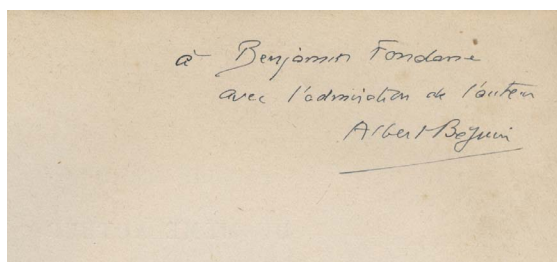 à Benjamin Fondane
avec l'admiration de l'auteur
Albert Béguin